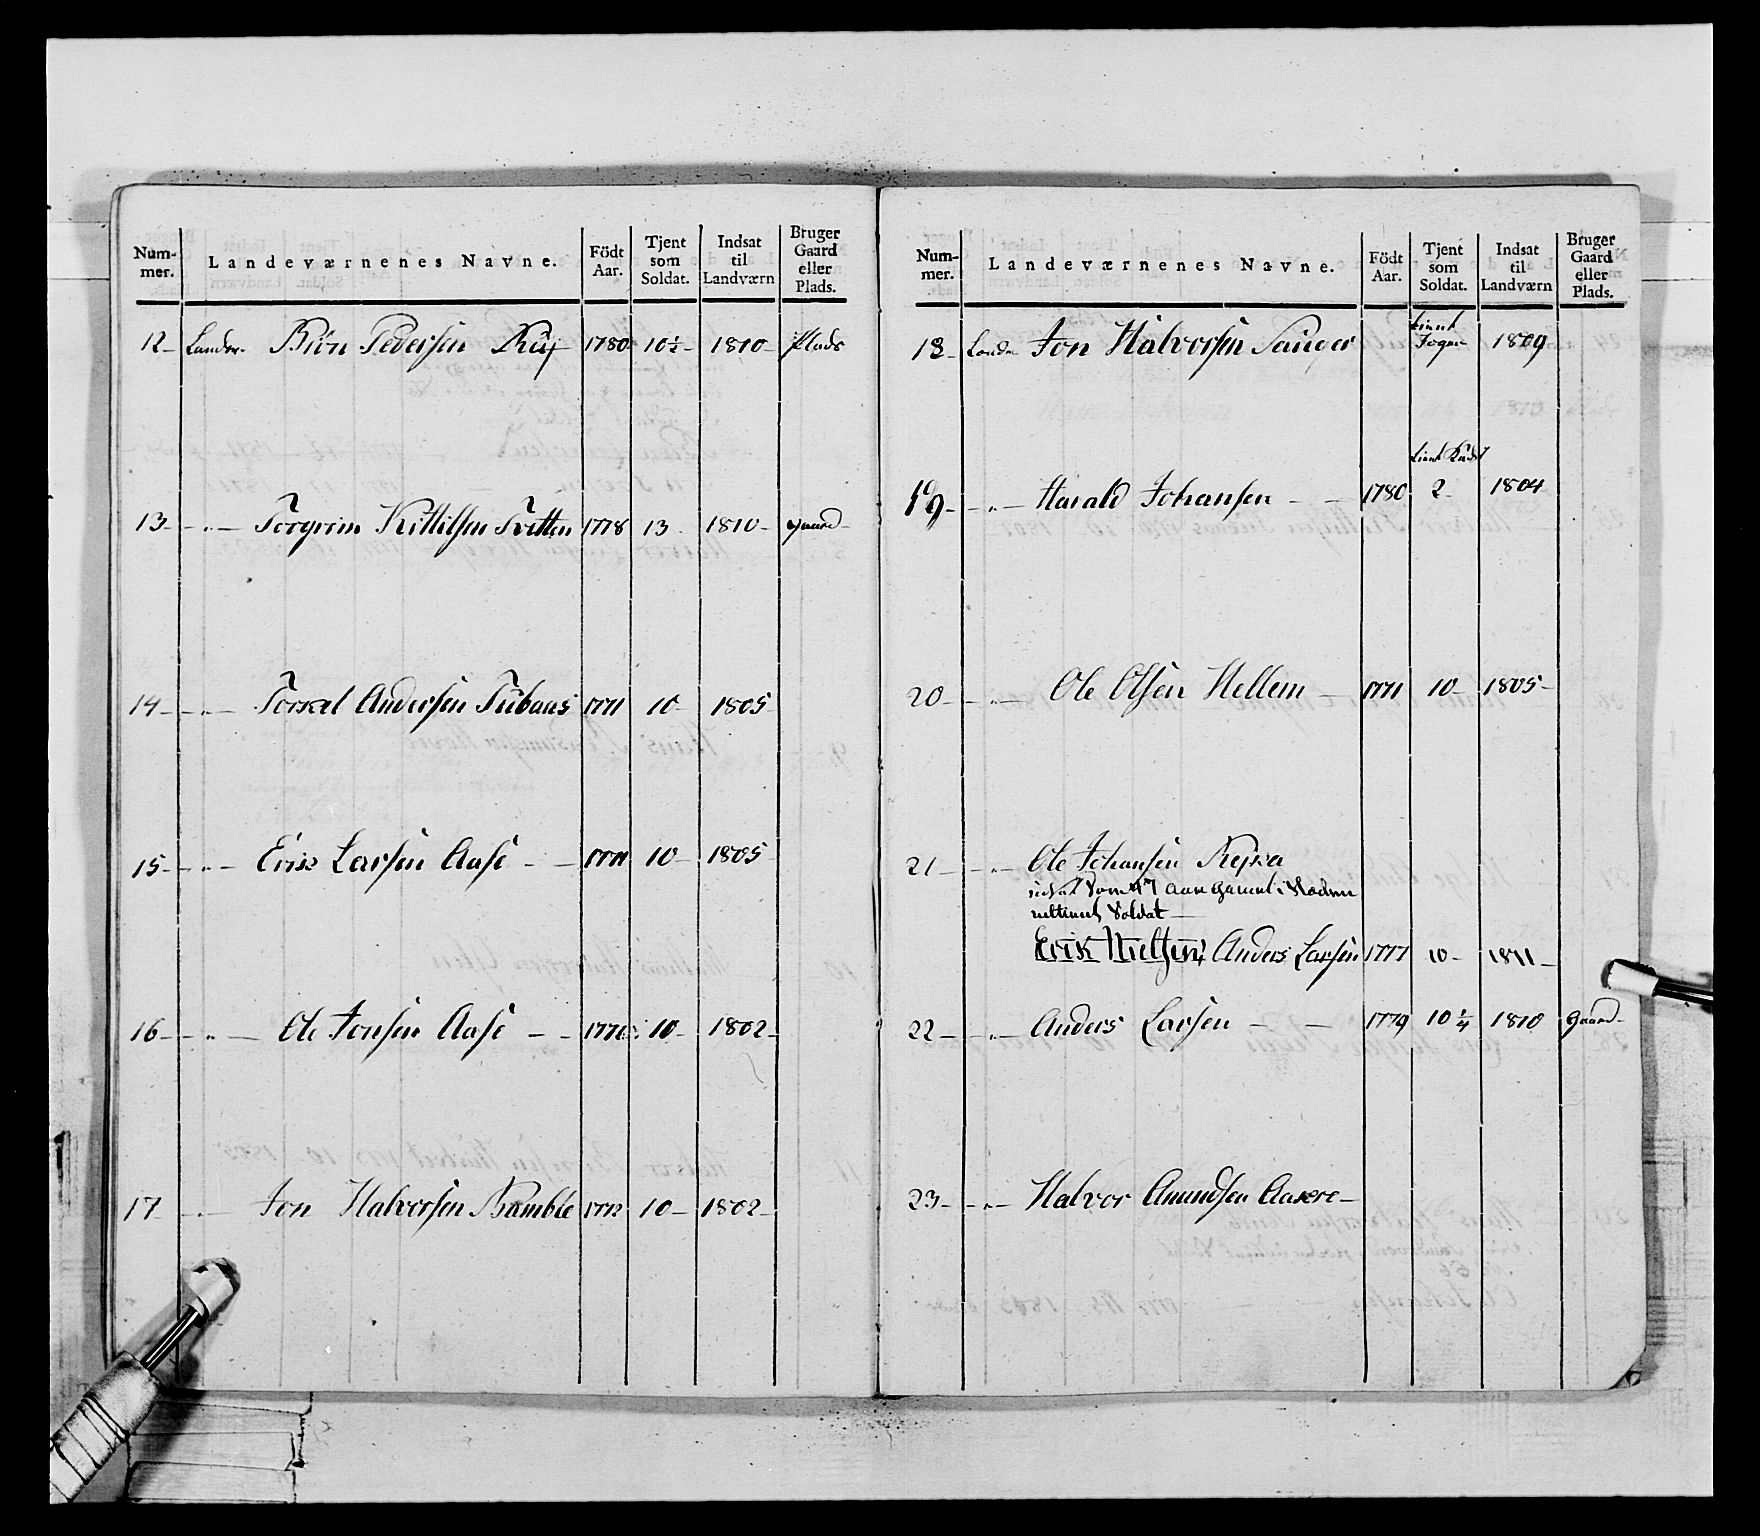 Num-
mer.
Landeværnenes Navne.
Födt
Aar.
Tjent
som
Soldat.
Indsat
til
Landværn
Bruger
Gaard
eller
Plads.
12 Landv. Biön Pedersen 1780 10½ 1810 Plads
13 " Torgrim Kittilsen Tvitten 1778 13 1810 Gaard
14 " Torkel Andersen 1771 10 1805
15 " Erik Larsen Aase 1771 10 1805
16 " Ole Jonsen Aase 10 1802
17 " Jon Halvorsen Bamble 1772 10 1802
Num-
mer.
Landeværnenes Navne.
Födt
Aar.
Tjent
som
Soldat.
Indsat
til
Landværn
Bruger
Gaard
eller
Plads.
18 Landv Jon Halvorsen 1809
19 " Harald Johansen 1780 2 1804
20 " Ole Olsen Hellem 1771 10 1805
21 " Ole Johansen
Soldat
Erik Nielsen Anders Larsen 1777 10 1811
22 " Anders Larsen 1779 10¼ 1810 Gaard
23 " Halvor Amundsen